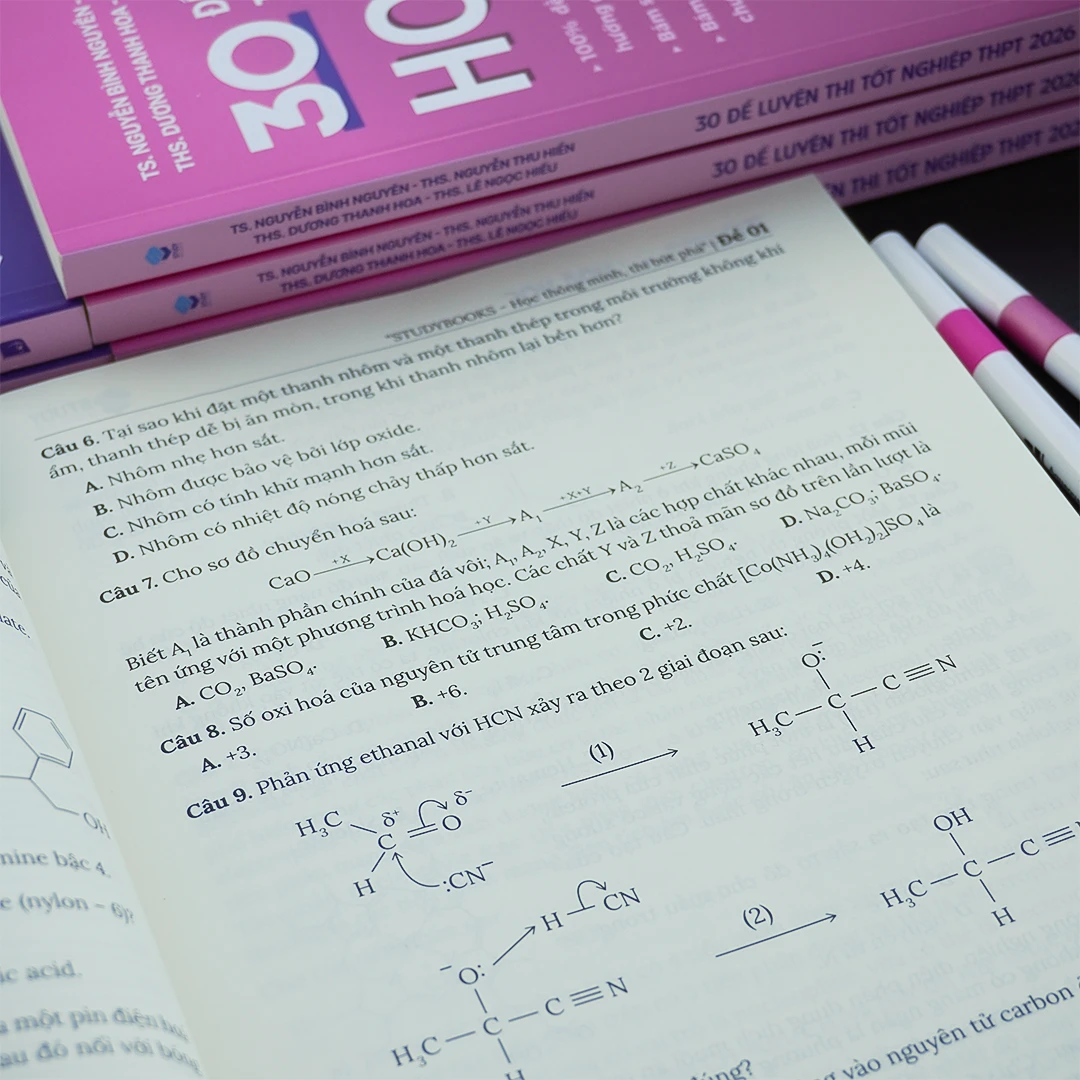 TS. NGUYỄN BÌNH NGUYÊN -
THS. DƯƠNG THANH HOA -
30
HO
• 100% đề
hướng
• Bản s
• Bản
30 ĐỀ LUYỆN THI TỐT NGHIỆP THPT 2026
TS. NGUYỄN BÌNH NGUYÊN - THS. NGUYỄN THU HIỀN
THS. DƯƠNG THANH HOA - THS. LÊ NGỌC HIẾU
30 ĐỀ LUYỆN THI TỐT NGHIỆP THPT 2026
TS. NGUYỄN BÌNH NGUYÊN - THS. NGUYỄN THU HIỀN
THS. DƯƠNG THANH HOA - THS. LÊ NGỌC HIẾU
THI TỐT NGHIỆP THPT
"STUDYBOOKS - Học thông minh, thi bứt phá" | Đề 01
Câu 6. Tại sao khi đặt một thanh nhôm và một thanh thép trong môi trường không khí
ẩm, thanh thép dễ bị ăn mòn, trong khi thanh nhôm lại bền hơn?
A. Nhôm nhẹ hơn sắt.
B. Nhôm được bảo vệ bởi lớp oxide.
C. Nhôm có tính khử mạnh hơn sắt.
D. Nhôm có nhiệt độ nóng chảy thấp hơn sắt.
Câu 7. Cho sơ đồ chuyển hoá sau:
CaO +X → Ca(OH)₂ +Y → A₁ +X+Y → A₂ +Z → CaSO₄
Biết A₁ là thành phần chính của đá vôi; A₁, A₂, X, Y, Z là các hợp chất khác nhau, mỗi mũi
tên ứng với một phương trình hoá học. Các chất Y và Z thoả mãn sơ đồ trên lần lượt là
A. CO₂, BaSO₄. B. KHCO₃; H₂SO₄. C. CO₂, H₂SO₄. D. Na₂CO₃; BaSO₄.
Câu 8. Số oxi hoá của nguyên tử trung tâm trong phức chất [Co(NH₃)₄(OH₂)₂]SO₄ là
A. +3. B. +6. C. +2. D. +4.
Câu 9. Phản ứng ethanal với HCN xảy ra theo 2 giai đoạn sau:
H₃C C δ⁺ O δ⁻ H :CN⁻
(1)
O:⁻
H₃C C C≡N
H
H CN
⁻O:
H₃C C C≡N
H
(2)
OH
H₃C C C≡N
H
vào nguyên tử carbon
OH
mine bậc 4.
e (nylon – 6)?
ic acid.
một pin điện
au đó nối với bóng